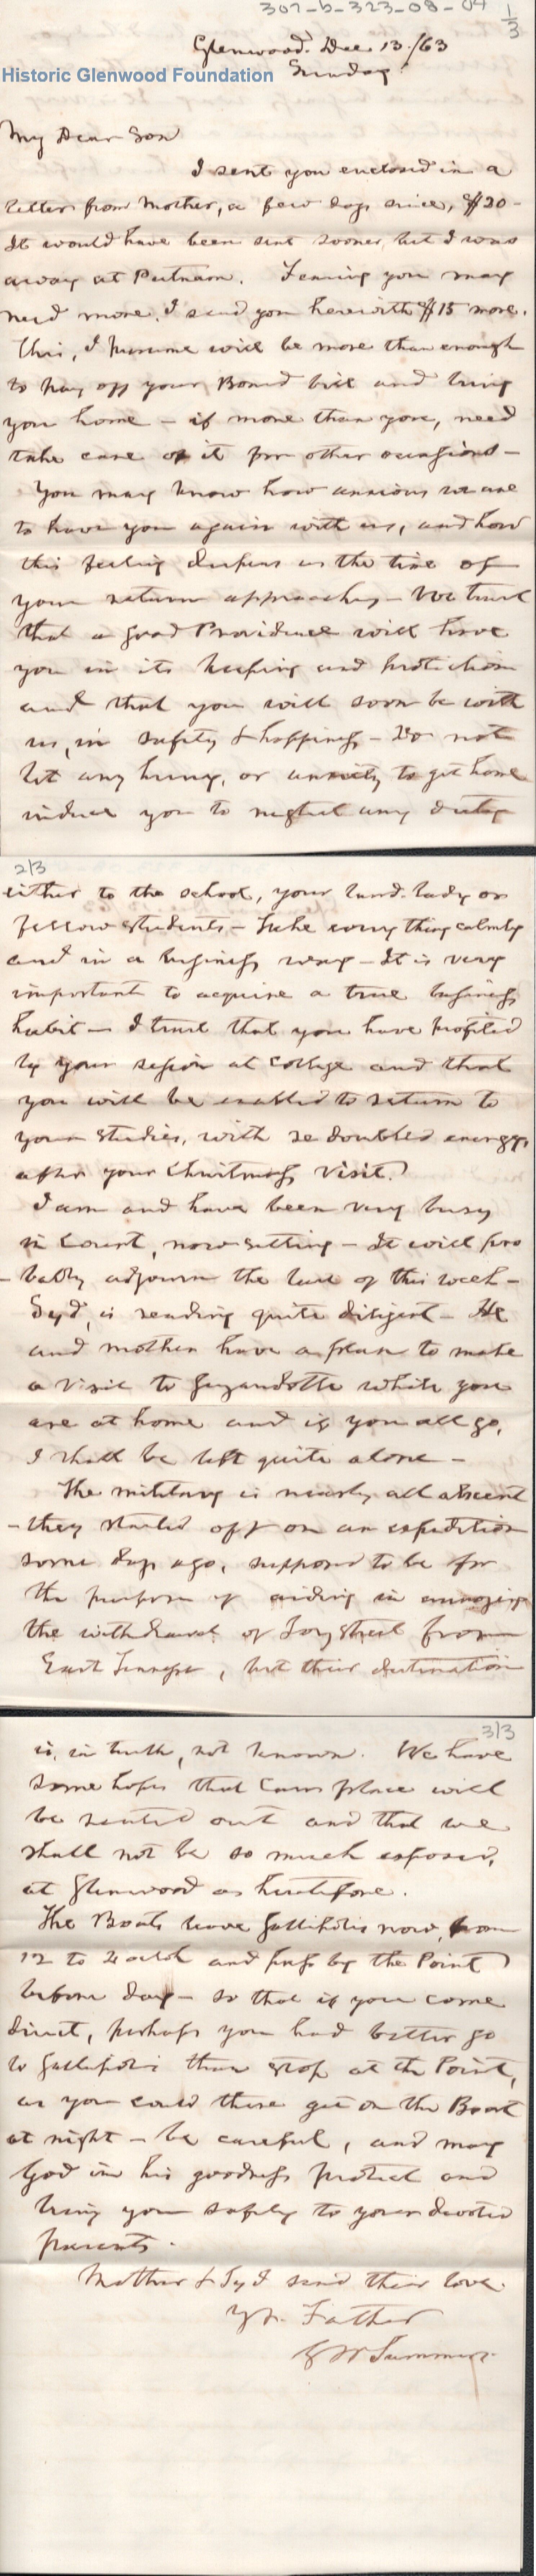 302-b-323-08-04 1/3
Glenwood. Dec 13./63
Historic Glenwood Foundation
Sunday
My Dear Son
I sent you enclosed in a
letter from Mother, a few days since, $20-
It would have been sent sooner, but I was
away at Putnam. Fearing you may
need more, I send you herewith $15 more.
This, I presume will be more than enough
to pay off your Board bill and bring
you home - if more than you, need
take care of it for other occasions -
You may know how anxious we are
to have you again with us, and how
this feeling deepens as the time of
your return approaches - We trust
that a good Providence will have
you in its keeping and protection
and that you will soon be with
us, in safety & happiness - Do not
let any hurry, or anxiety to get home
induce you to neglect any duty
2/3
either to the school, your land-lady or
fellow students - Take every thing calmly
and in a business way - It is very
important to acquire a true business
habit - I trust that you have profited
by your session at College and that
you will be enabled to return to
your studies, with redoubled energy,
after your Christmas visit.
I am and have been very busy
in Court, now sitting - It will pro
- bably adjourn the last of this week -
Syd, is reading quite diligent - He
and mother have a plan to make
a visit to Guyandotte while you
are at home and if you all go,
I shall be left quite alone -
The military is nearly all absent
- they started off on an expedition
some days ago, supposed to be for
the purpose of aiding in annoying
the withdrawal of Longstreet from
East Tennessee, but their destination
3/3
is, in truth, not known. We have
some hopes that Camp place will
be rented out and that we
shall not be so much exposed,
at Glenwood as heretofore.
The Boats leave Gallipolis now, from
12 to 2 oclock and pass by the Point
before day - so that if you come
direct, perhaps you had better go
to Gallipolis than stop at the Point,
as you could there get on the Boat
at night - be careful, and may
God in his goodness protect and
bring you safely to your devoted
parents.
Mother & Syd send their love.
Yr. Father
G W Summers